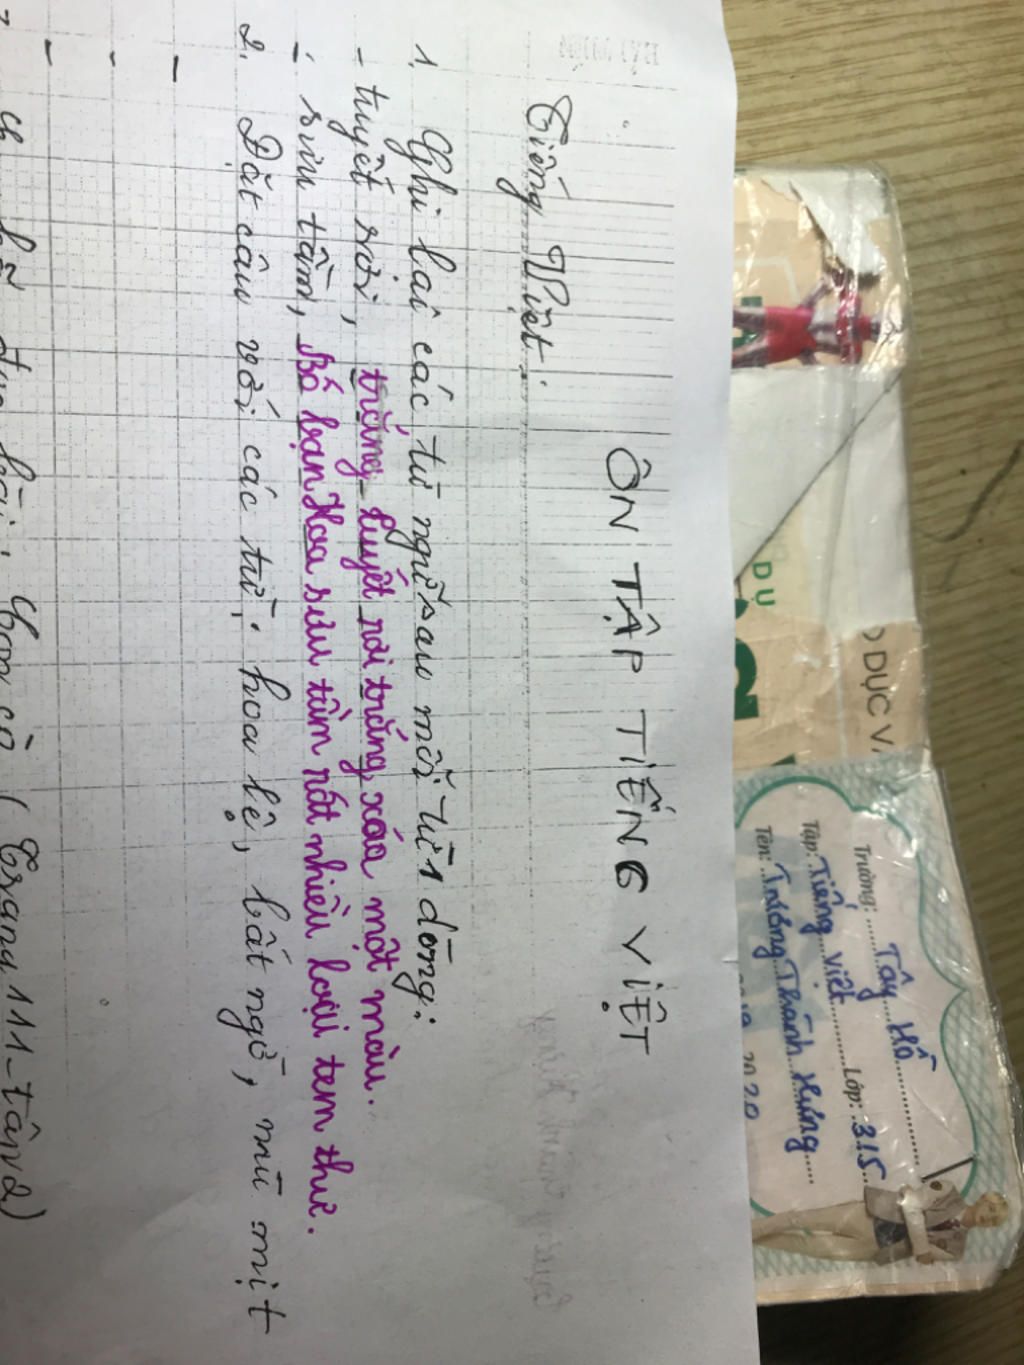 ÔN TẬP TIẾNG VIỆT
Tiếng Việt:
1. Ghi lại các từ ngữ sau mỗi từ 1 dòng:
- tuyết rơi, trắng tuyết rơi trắng xóa một màu.
- sưu tầm, Bố bạn Hoa sưu tầm rất nhiều loại tem thư.
2. Đặt câu với các từ: hoa lệ, bất ngờ, mù mịt
-
-
-
bài: Con cò (Trang 111-tập 2)
DỤ
O DỤC V
Trường: Tây Hồ
Tập: Tiếng Việt Lớp: 315
Tên: Trương Thành Hưng
2020